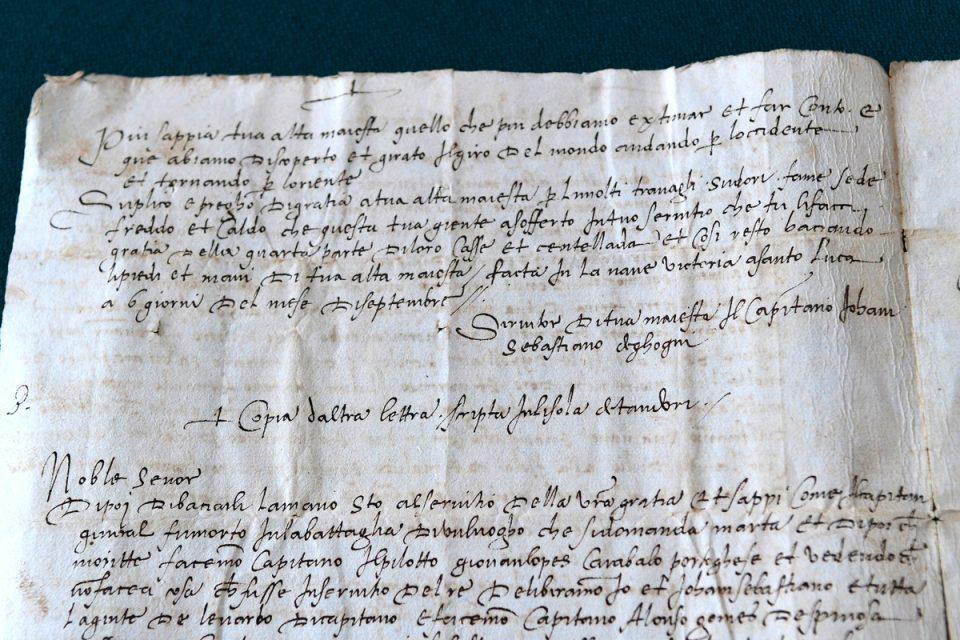 Piu sappia tua alta maiesta quello che piu debbiamo extimar et far Conto. e
que abiamo Discoperto et girato Ilgiro Del mondo andando p loccidente
et tornando p loriente
Suplico e pregho Digratia atua alta maiesta p limolti travagli. Sudori. fame sede
freddo et Caldo che questa tua giente asofferto Intuo servitio che fu lifacci
gratia Della quarta parte Diloro Casse et centellada et Cosi resto baciando
lipiedi et mani Di tua alta maiesta, facta In la nave victoria asanto Luca
a 6 giorni Del mese Diseptembre
Ditua maiesta Il Capitano Johan
Sebastiano
3.
Copia daltra lettra. scripta Inlisola
Noble Senor
Dipoi Dibaciarli Lamano Sto alservitio Della vra gratia et sappi Come Ilcapitan
fumorto Inlabattaglia Diunluogho che sudomanda marta et Dipoi
moritte facemo Capitano Ilpilotto giovanlopes Carabalo portghese et vedendo
nofaceci cosa fusse Inservitio Del re Deliberamo Io et Johansebastiano etutta
lagiente De levarlo Dicapitano et facemo Capitano Alonso gomes Despinosa